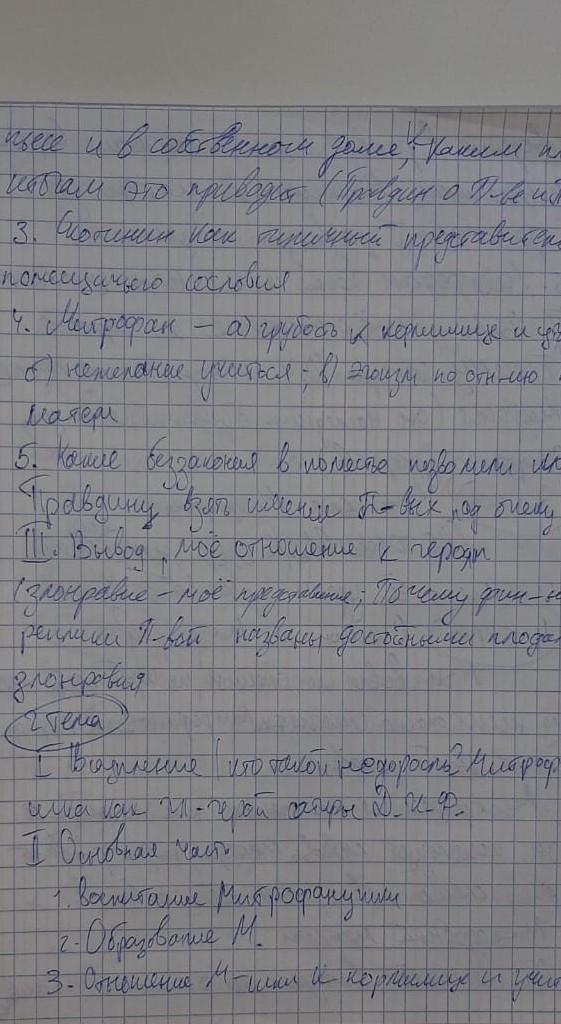 пьесе и в собственном доме; К каким пл
итогам это приводит (Правдин о П-ве и П
3. Скотинин как типичный представитель
помещичьего сословия
4. Митрофан – а) грубость к кормилице и уч
б) нежелание учиться; в) эгоизм по отн-ию
матери
5. Какие беззакония в поместье позволили
Правдину взять имение П-вых под опеку
III. Вывод, моё отношение к героям
(злонравие – моё представление; Почему фин-н
реплики П-вой названы достойными плодам
злонравия
2 тема
I Вступление (кто такой недоросль? Митроф
шка как гл-герой сатиры Д.И.Ф.
II Основная часть
1. Воспитание Митрофанушки
2. Образование М.
3. Отношение М-шки к кормилице и учит